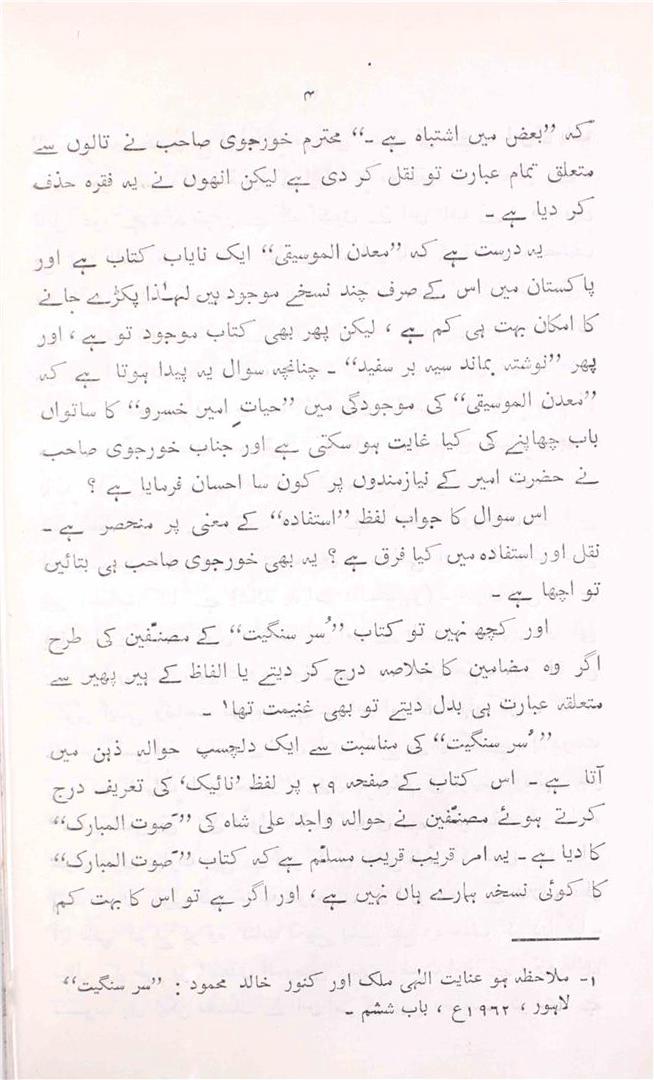 ۴
کہ ”بعض میں اشتباہ ہے ۔“ محترم خورجوی صاحب نے تالوں سے
متعلق تمام عبارت تو نقل کر دی ہے لیکن انھوں نے یہ فقرہ حذف
کر دیا ہے ۔
یہ درست ہے کہ ”معدن الموسیقی“ ایک نایاب کتاب ہے اور
پاکستان میں اس کے صرف چند نسخے موجود ہیں لہٰذا پکڑے جانے
کا امکان بہت ہی کم ہے ، لیکن پھر بھی کتاب موجود تو ہے ، اور
پھر ”نوشتہ بماند سیہ بر سفید“ ۔ چنانچہ سوال یہ پیدا ہوتا ہے کہ
”معدن الموسیقی“ کی موجودگی میں ”حیاتِ امیر خسرو“ کا ساتواں
باب چھاپنے کی کیا غایت ہو سکتی ہے اور جناب خورجوی صاحب
نے حضرت امیر کے نیازمندوں پر کون سا احسان فرمایا ہے ؟
اس سوال کا جواب لفظ ”استفادہ“ کے معنی پر منحصر ہے ۔
نقل اور استفادہ میں کیا فرق ہے ؟ یہ بھی خورجوی صاحب ہی بتائیں
تو اچھا ہے ۔
اور کچھ نہیں تو کتاب ”سُر سنگیت“ کے مصنّفین کی طرح
اگر وہ مضامین کا خلاصہ درج کر دیتے یا الفاظ کے ہیر پھیر سے
متعلقہ عبارت ہی بدل دیتے تو بھی غنیمت تھا۱ ۔
”سُر سنگیت“ کی مناسبت سے ایک دلچسپ حوالہ ذہن میں
آتا ہے ۔ اس کتاب کے صفحہ ۲۹ پر لفظ ’نائیک‘ کی تعریف درج
کرتے ہوئے مصنّفین نے حوالہ واجد علی شاہ کی ”صَوت المبارک“
کا دیا ہے ۔ یہ امر قریب قریب مسلّم ہے کہ کتاب ”صَوت المبارک“
کا کوئی نسخہ ہمارے ہاں نہیں ہے ، اور اگر ہے تو اس کا بہت کم
۱۔ ملاحظہ ہو عنایت الٰہی ملک اور کنور خالد محمود : ”سر سنگیت“
لاہور ، ۱۹۶۲ع ، باب ششم ۔